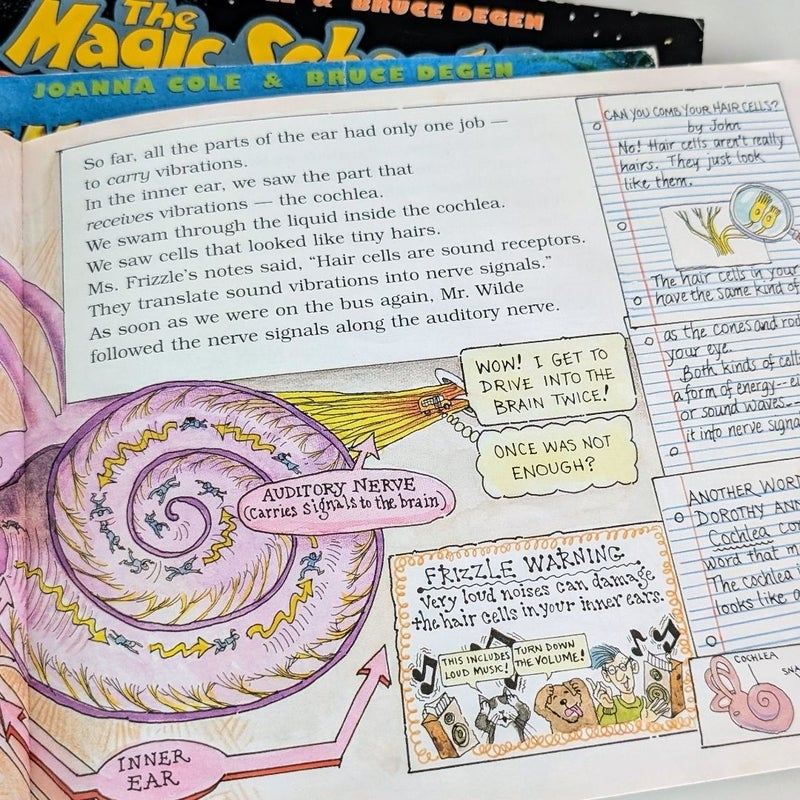 & BRUCE DEGEN
The
Magic
JOANNA COLE & BRUCE DEGEN
So far, all the parts of the ear had only one job —
to carry vibrations.
In the inner ear, we saw the part that
receives vibrations — the cochlea.
We swam through the liquid inside the cochlea.
We saw cells that looked like tiny hairs.
Ms. Frizzle's notes said, "Hair cells are sound receptors.
They translate sound vibrations into nerve signals."
As soon as we were on the bus again, Mr. Wilde
followed the nerve signals along the auditory nerve.
WOW! I GET TO
DRIVE INTO THE
BRAIN TWICE!
ONCE WAS NOT
ENOUGH?
AUDITORY NERVE
(Carries signals to the brain)
INNER
EAR
FRIZZLE WARNING
Very loud noises can damage
the hair cells in your inner ears.
THIS INCLUDES
LOUD MUSIC!
TURN DOWN
THE VOLUME!
CAN YOU COMB YOUR HAIR CELLS?
by John
No! Hair cells aren't really
hairs. They just look
like them.
The hair cells in your
have the same kind of
as the cones and rod
your eye.
Both kinds of cells
a form of energy--
or sound waves--
it into nerve signa
ANOTHER WORD
DOROTHY ANN
Cochlea co
word that m
The cochlea i
looks like a
COCHLEA
SNA